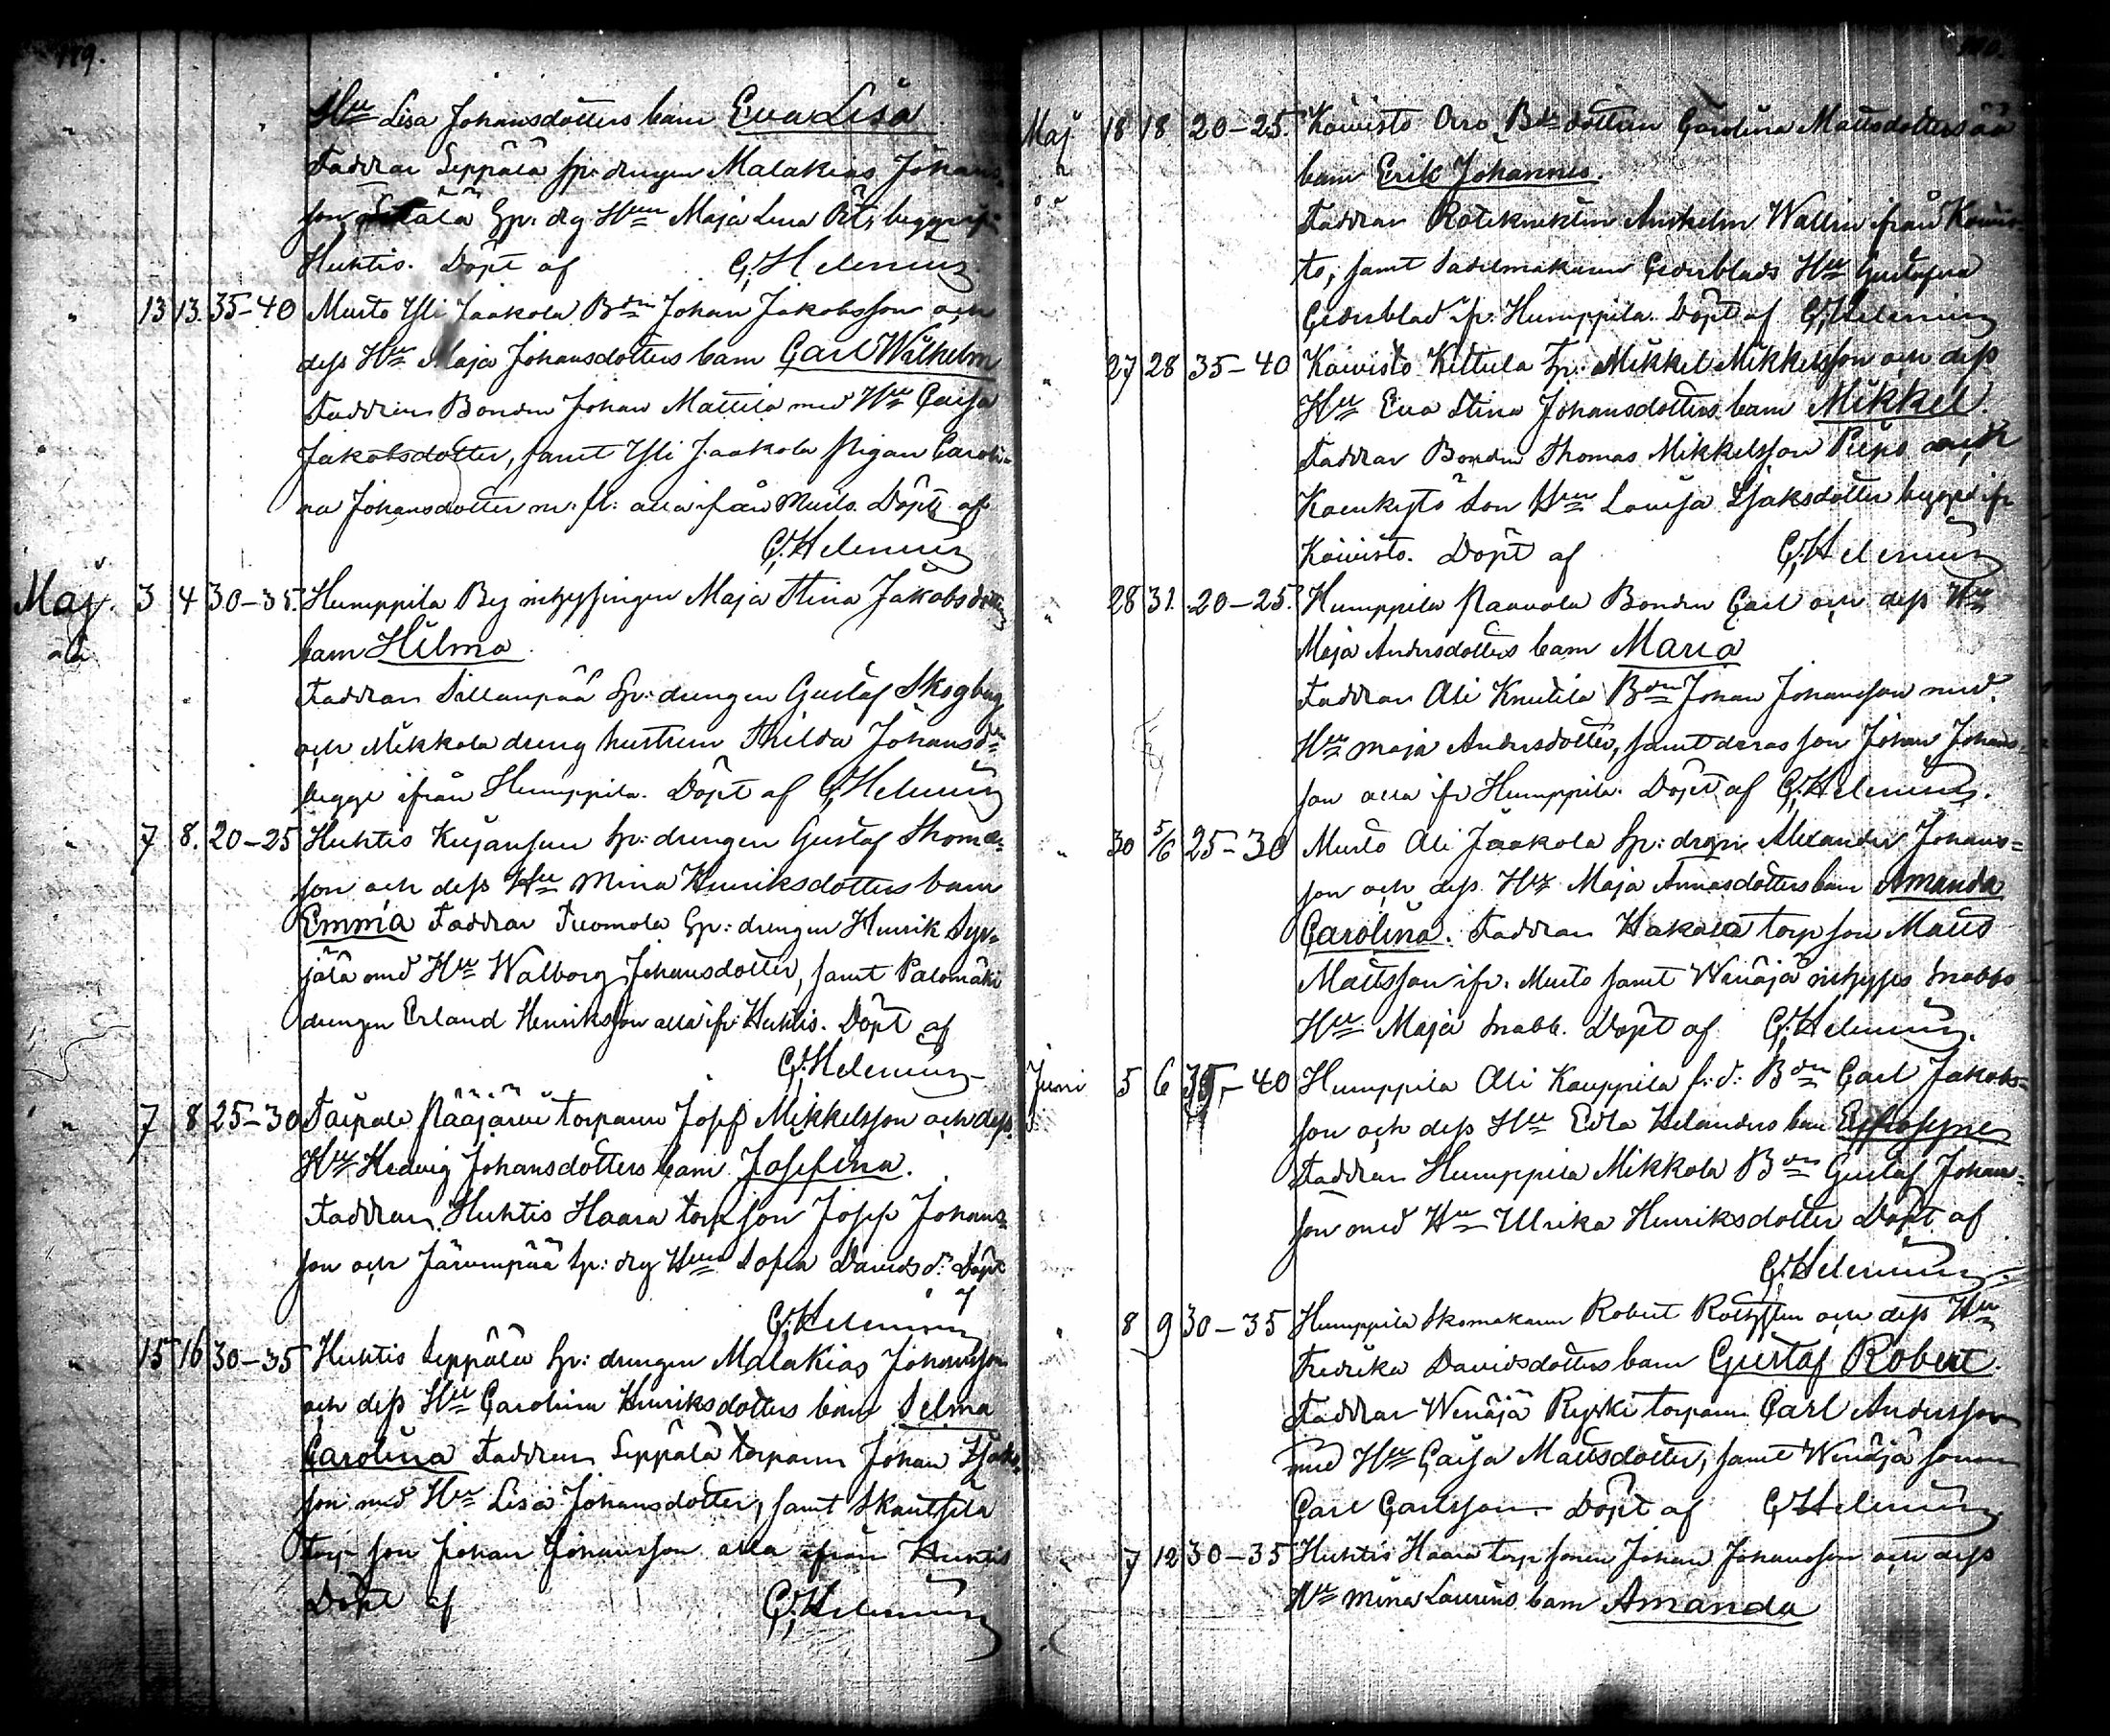 119.
Hu Lisa Johansdotters barn Eva Lisa
Faddrar Seppälä sp: drengen Malakias Johans-
son, Sp: drg Hun Maja Lena begge ifr:
Huhtis. Döpt af G. Helenius
13 13. 35-40 Murto Yli Jaakola Bdn Johan Jakobsson och
dess Hu Maja Johansdotters barn Carl Wilhelm
Faddrar Bonden Johan Mattila med Hu Caisa
Jakobsdotter, samt Yli Jaakola pigan Caroli-
na Johansdotter m: fl: alla ifrån Murto. Döpt af
G. Helenius
Maj. 3 4 30-35. Humppila By inhysingen Maja Stina Jakobsdotters
barn Hilma
Faddrar Sillanpää Sp: drengen Gustaf Skogberg
och Mikkola dreng hustrun Thilda Johansdr
begge ifrån Humppila. Döpt af G. Helenius
7 8. 20-25 Huhtis Kujansuu Sp: drengen Gustaf Thomas-
son och dess Hu Mina Henriksdotters barn
Emma Faddrar Tuomola Sp: drengen Henrik Syr-
jälä med Hu Walborg Johansdotter, samt Palomäki
drengen Erland Henriksson alla ifr: Huhtis. Döpt af
G. Helenius
7 8 25-30 Taipale Pääjärvi torparen Josef Mikkelsson och dess
Hu Hedvig Johansdotters barn Josefina.
Faddrar Huhtis Haara torp son Josef Johans-
son och Järvenpää Sp: drg Hun Sofia Davidsd: Döpt
af
G. Helenius
15 16 30-35 Huhtis Seppälä Sp: drengen Malakias Johansson
och dess Hu Carolina Henriksdotters barn Selma
Carolina Faddrar Seppälä torparen Johan Isaks-
son med Hu Lisa Johansdotter, samt Skantsila
torp son Johan Johansson alla ifrån Huhtis
Döpt af G. Helenius
Maj 18 18 20-25. Koivisto Orro Bde dottren Carolina Mattsdotters oä
barn Erik Johannes.
Faddrar Roteknekten Anshelm Wallin ifrån Koivis-
to, samt Sadelmakaren Cederblads Hu Gustafva
Cederblad ifr. Humppila. Döpt af G. Helenius
27 28 35-40 Koivisto Kettula Sp: Mikkel Mikkelsson och dess
Hu Eva Stina Johansdotters barn Mikkel.
Faddrar Bonden Thomas Mikkelsson Piepo och
son Hun Lovisa Isaksdotter begge ifr
Koivisto. Döpt af G. Helenius
28 31. 20-25. Humppila Paavola Bonden Carl och dess Hu
Maja Andersdotters barn Maria
Faddrar Ali Knutila Bdn Johan Johansson med
Hu Maja Andersdotter, samt deras son Johan Johans-
son alla ifr Humppila. Döpt af G. Helenius.
30 5/6 25-30 Murto Ali Jaakola Sp: drgn Alexander Johans-
son och dess Hu Maja Annasdotters barn Amanda
Carolina. Faddrar Hakala torp son Matts
Mattsson ifr. Murto samt Wenäjä inhyses Snabbs
Hu Maja Snabb. Döpt af G. Helenius.
Juni 5 6 35-40 Humppila Ali Kauppila f: d: Bdn Carl Jakobs-
son och dess Hu Edla Helanders barn Eufrosyne
Faddrar Humppila Mikkola Bdn Gustaf Johans-
son med Hu Ulrika Henriksdotter Döpt af
G. Helenius
8 9 30-35 Humppila Skomakaren Robert och dess Hu
Fredrika Davidsdotters barn Gustaf Robert.
Faddrar Wenäjä Ryski torparen Carl Andersson
med Hu Caisa Mattsdotter, samt Wenäjä sonen
Carl Carlsson. Döpt af G. Helenius.
7 12 30-35 Huhtis Haara torp sonen Johan Johansson och dess
Hu Mina Laurins barn Amanda